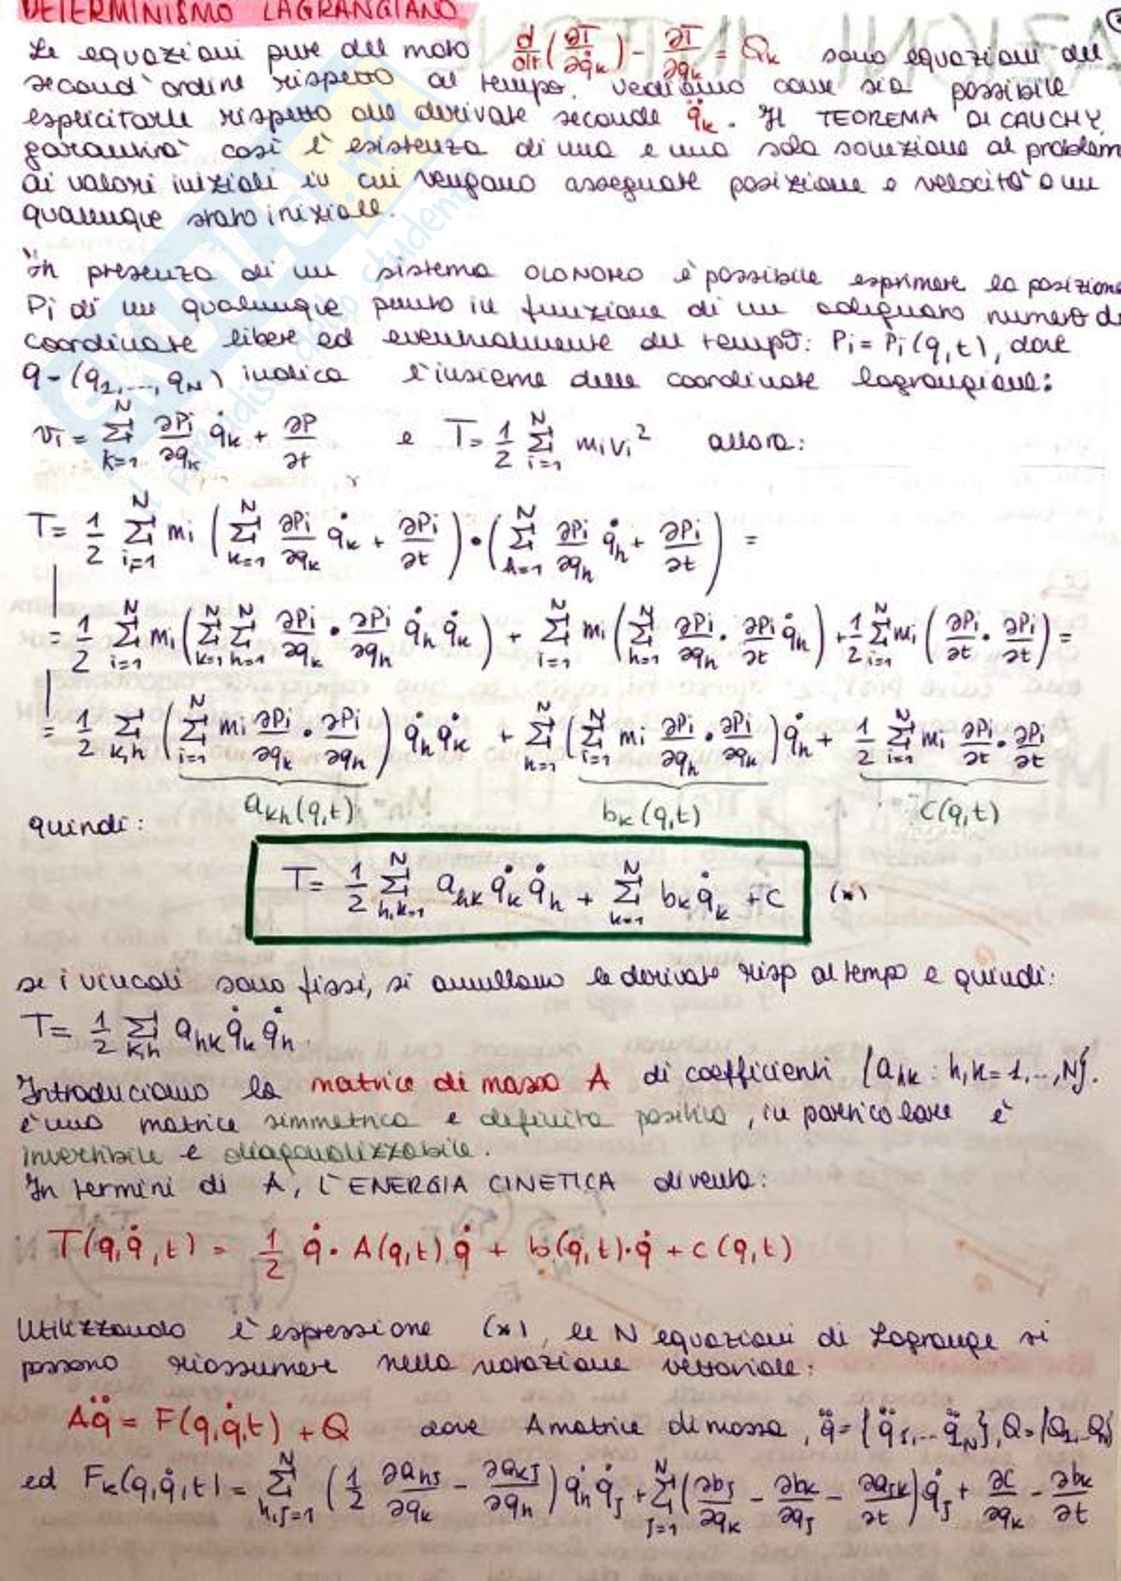 DETERMINISMO LAGRANGIANO
Le equazioni pure del moto d/dt(∂T/∂q̇k) - ∂T/∂qk = Qk sono equazioni del
second'ordine rispetto al tempo. Vediamo come sia possibile
esplicitarle rispetto alle derivate seconde q̈k. Il TEOREMA DI CAUCHY
garantirà così l'esistenza di una e una sola soluzione al problem
ai valori iniziali in cui vengano assegnate posizione e velocità a un
qualunque stato iniziale.
In presenza di un sistema OLONOMO è possibile esprimere la posizione
Pi di un qualunque punto in funzione di un adeguato numero di
coordinate libere ed eventualmente del tempo: Pi = Pi(q,t), dove
q-(q1,...,qN) indica l'insieme delle coordinate lagrangiane:
vi = Σ_{k=1}^{N} ∂Pi/∂qk q̇k + ∂P/∂t e T = 1/2 Σ_{i=1}^{N} mivi² allora:
T = 1/2 Σ_{i=1}^{N} mi (Σ_{k=1}^{N} ∂Pi/∂qk q̇k + ∂Pi/∂t)•(Σ_{h=1}^{N} ∂Pi/∂qh q̇h + ∂Pi/∂t) =
= 1/2 Σ_{i=1}^{N} mi (Σ_{k=1}^{N} Σ_{h=1}^{N} ∂Pi/∂qk • ∂Pi/∂qh q̇h q̇k) + Σ_{i=1}^{N} mi (Σ_{h=1}^{N} ∂Pi/∂qh • ∂Pi/∂t q̇h) + 1/2 Σ_{i=1}^{N} mi (∂Pi/∂t • ∂Pi/∂t) =
= 1/2 Σ_{k,h} (Σ_{i=1}^{N} mi ∂Pi/∂qk • ∂Pi/∂qh) q̇h q̇k + Σ_{h=1}^{N} (Σ_{i=1}^{N} mi ∂Pi/∂qh • ∂Pi/∂qk) q̇h + 1/2 Σ_{i=1}^{N} mi ∂Pi/∂t • ∂Pi/∂t
akh(q,t) bk(q,t) c(q,t)
quindi:
T = 1/2 Σ_{h,k=1}^{N} ahk q̇k q̇h + Σ_{k=1}^{N} bk q̇k + c (*)
se i vincoli sono fissi, si annullano le derivate risp al tempo e quindi:
T = 1/2 Σ_{k,h} ahk q̇k q̇h.
Introduciamo la matrice di massa A di coefficienti {ahk : h,k=1,..,N}.
è una matrice simmetrica e definita positiva, in particolare è
invertibile e diagonalizzabile.
In termini di A, l'ENERGIA CINETICA diventa:
T(q,q̇,t) = 1/2 q̇ • A(q,t) q̇ + b(q,t)•q̇ + c(q,t)
Utilizzando l'espressione (*), le N equazioni di Lagrange si
possono riassumere nella notazione vettoriale:
Aq̈ = F(q,q̇,t) + Q dove A matrice di massa, q̈ = {q̈1,...q̈N}, Q = {Q1...QN}
ed Fk(q,q̇,t) = Σ_{h,j=1}^{N} (1/2 ∂ahj/∂qk - ∂akj/∂qh) q̇h q̇j + Σ_{j=1}^{N} (∂bj/∂qk - ∂bk/∂qj - ∂ajk/∂t) q̇j + ∂c/∂qk - ∂bk/∂t